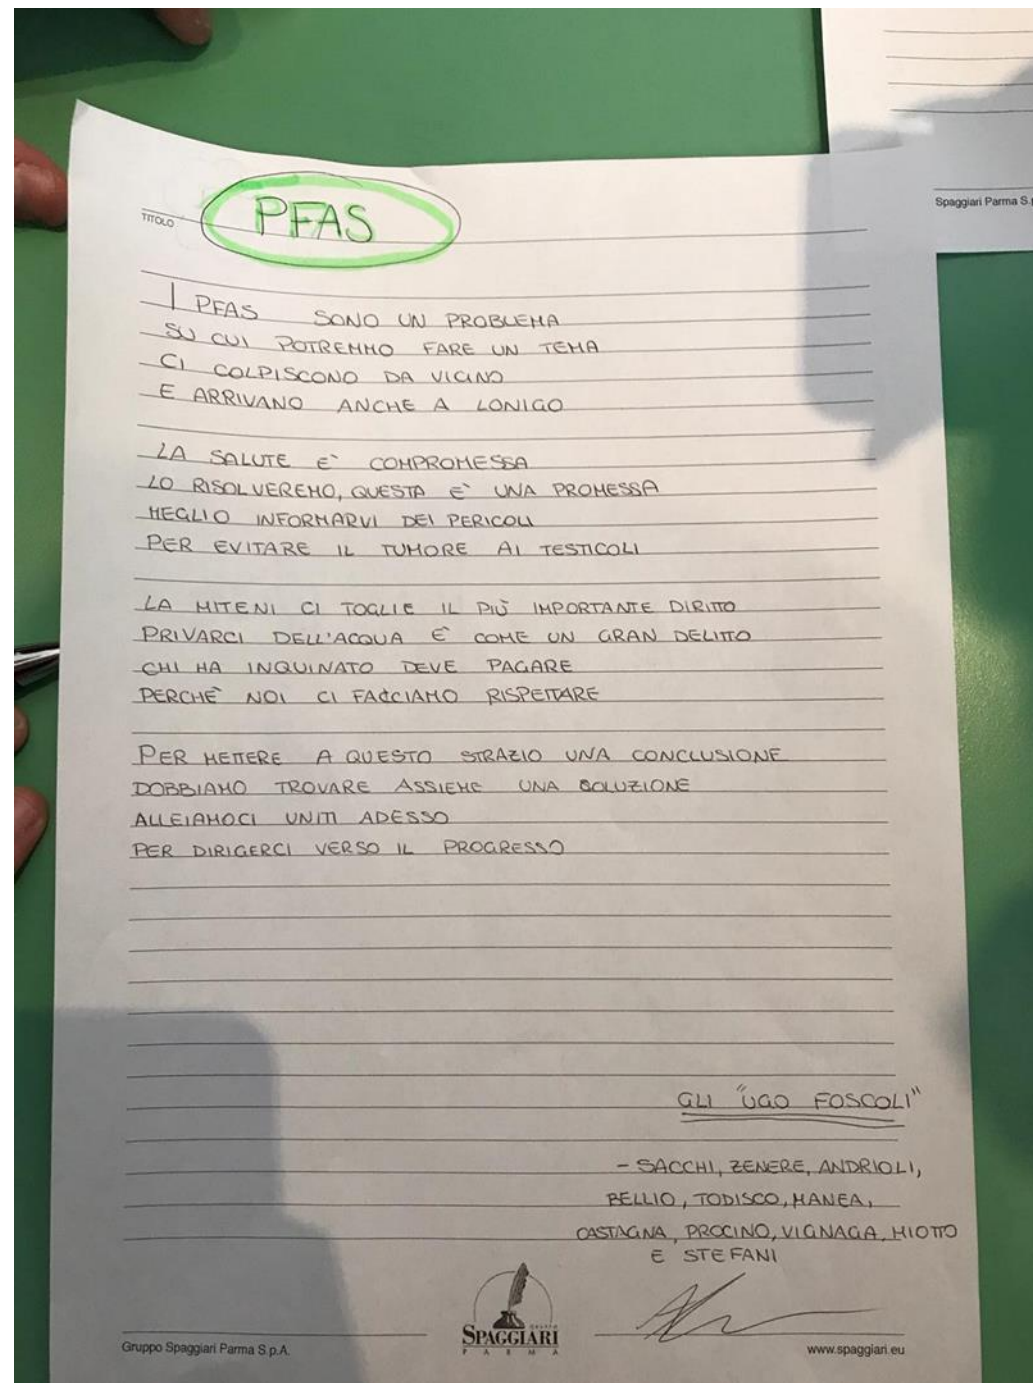 Spaggiari Parma S.p
TITOLO
PFAS
I PFAS SONO UN PROBLEMA
SU CUI POTREMMO FARE UN TEMA
CI COLPISCONO DA VICINO
E ARRIVANO ANCHE A LONIGO
LA SALUTE E` COMPROMESSA
LO RISOLVEREMO, QUESTA E` UNA PROMESSA
MEGLIO INFORMARVI DEI PERICOLI
PER EVITARE IL TUMORE AI TESTICOLI
LA MITENI CI TOGLIE IL PIÙ IMPORTANTE DIRITTO
PRIVARCI DELL'ACQUA È COME UN GRAN DELITTO
CHI HA INQUINATO DEVE PAGARE
PERCHÈ NOI CI FACCIAMO RISPETTARE
PER METTERE A QUESTO STRAZIO UNA CONCLUSIONE
DOBBIAMO TROVARE ASSIEME UNA SOLUZIONE
ALLEIAMOCI UNITI ADESSO
PER DIRIGERCI VERSO IL PROGRESSO
GLI "UGO FOSCOLI"
- SACCHI, ZENERE, ANDRIOLI,
BELLIO, TODISCO, MANEA,
CASTAGNA, PROCINO, VIGNAGA, MIOTTO
E STEFANI
GRUPPO
SPAGGIARI
PARMA
Gruppo Spaggiari Parma S.p.A.
www.spaggiari.eu